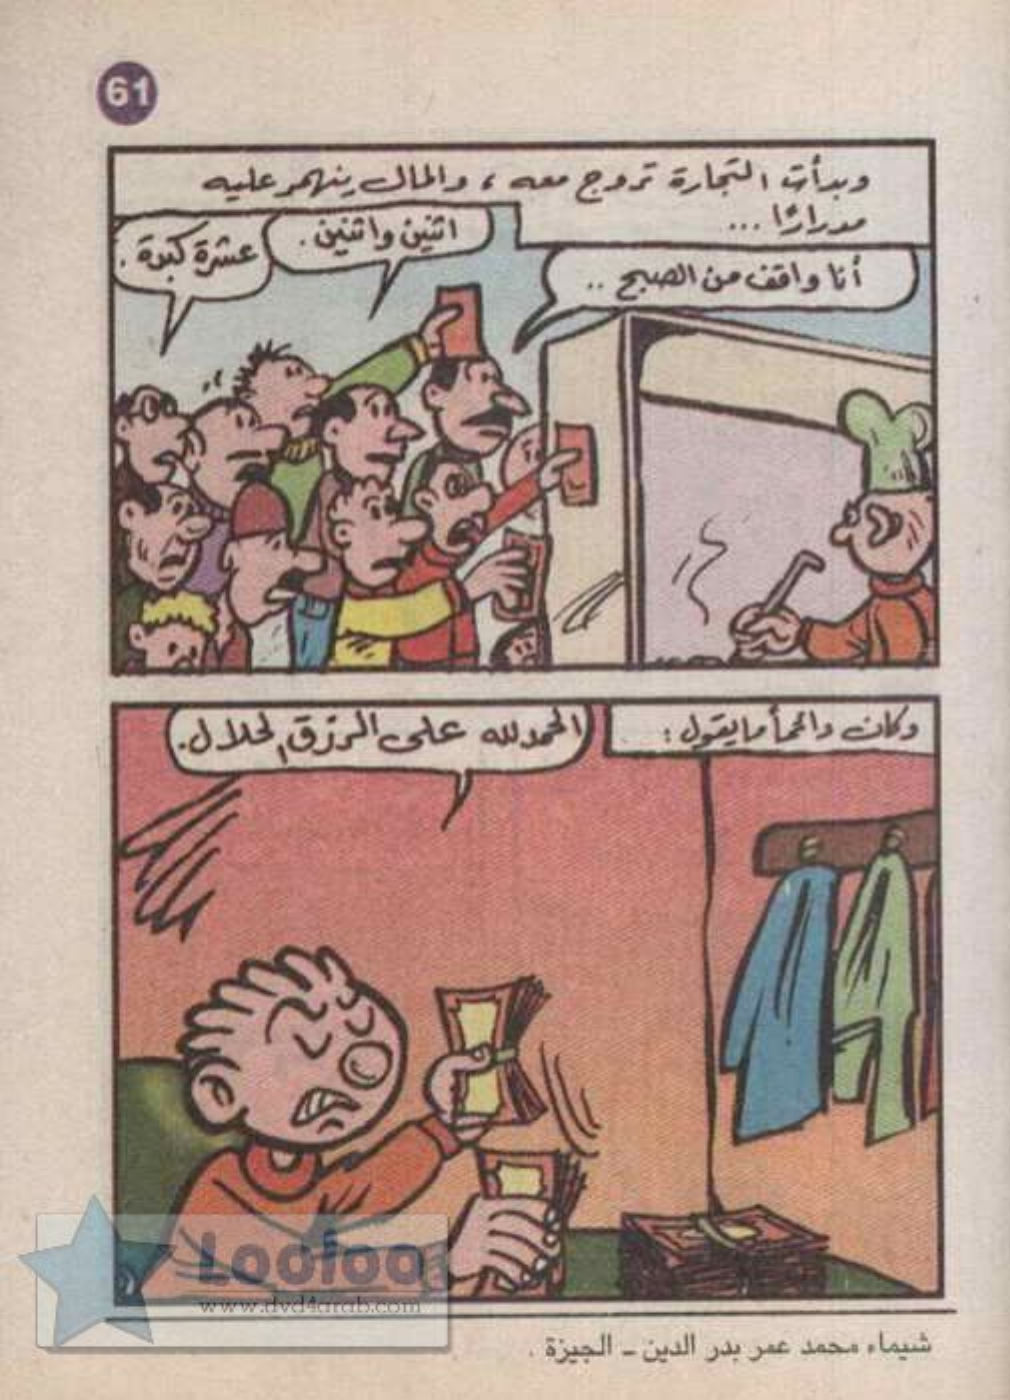 61
وبدأت التجارة تروج معه ، والمال ينهمر عليه
مدرارًا ...
أنا واقف من الصبح ..
اثنين واثنين .
عشرة كبدة .
وكان دائمًا ما يقول :
الحمد لله على الرزق الحلال .
Looloo
www.dvd4arab.com
شيماء محمد عمر بدر الدين - الجيزة .